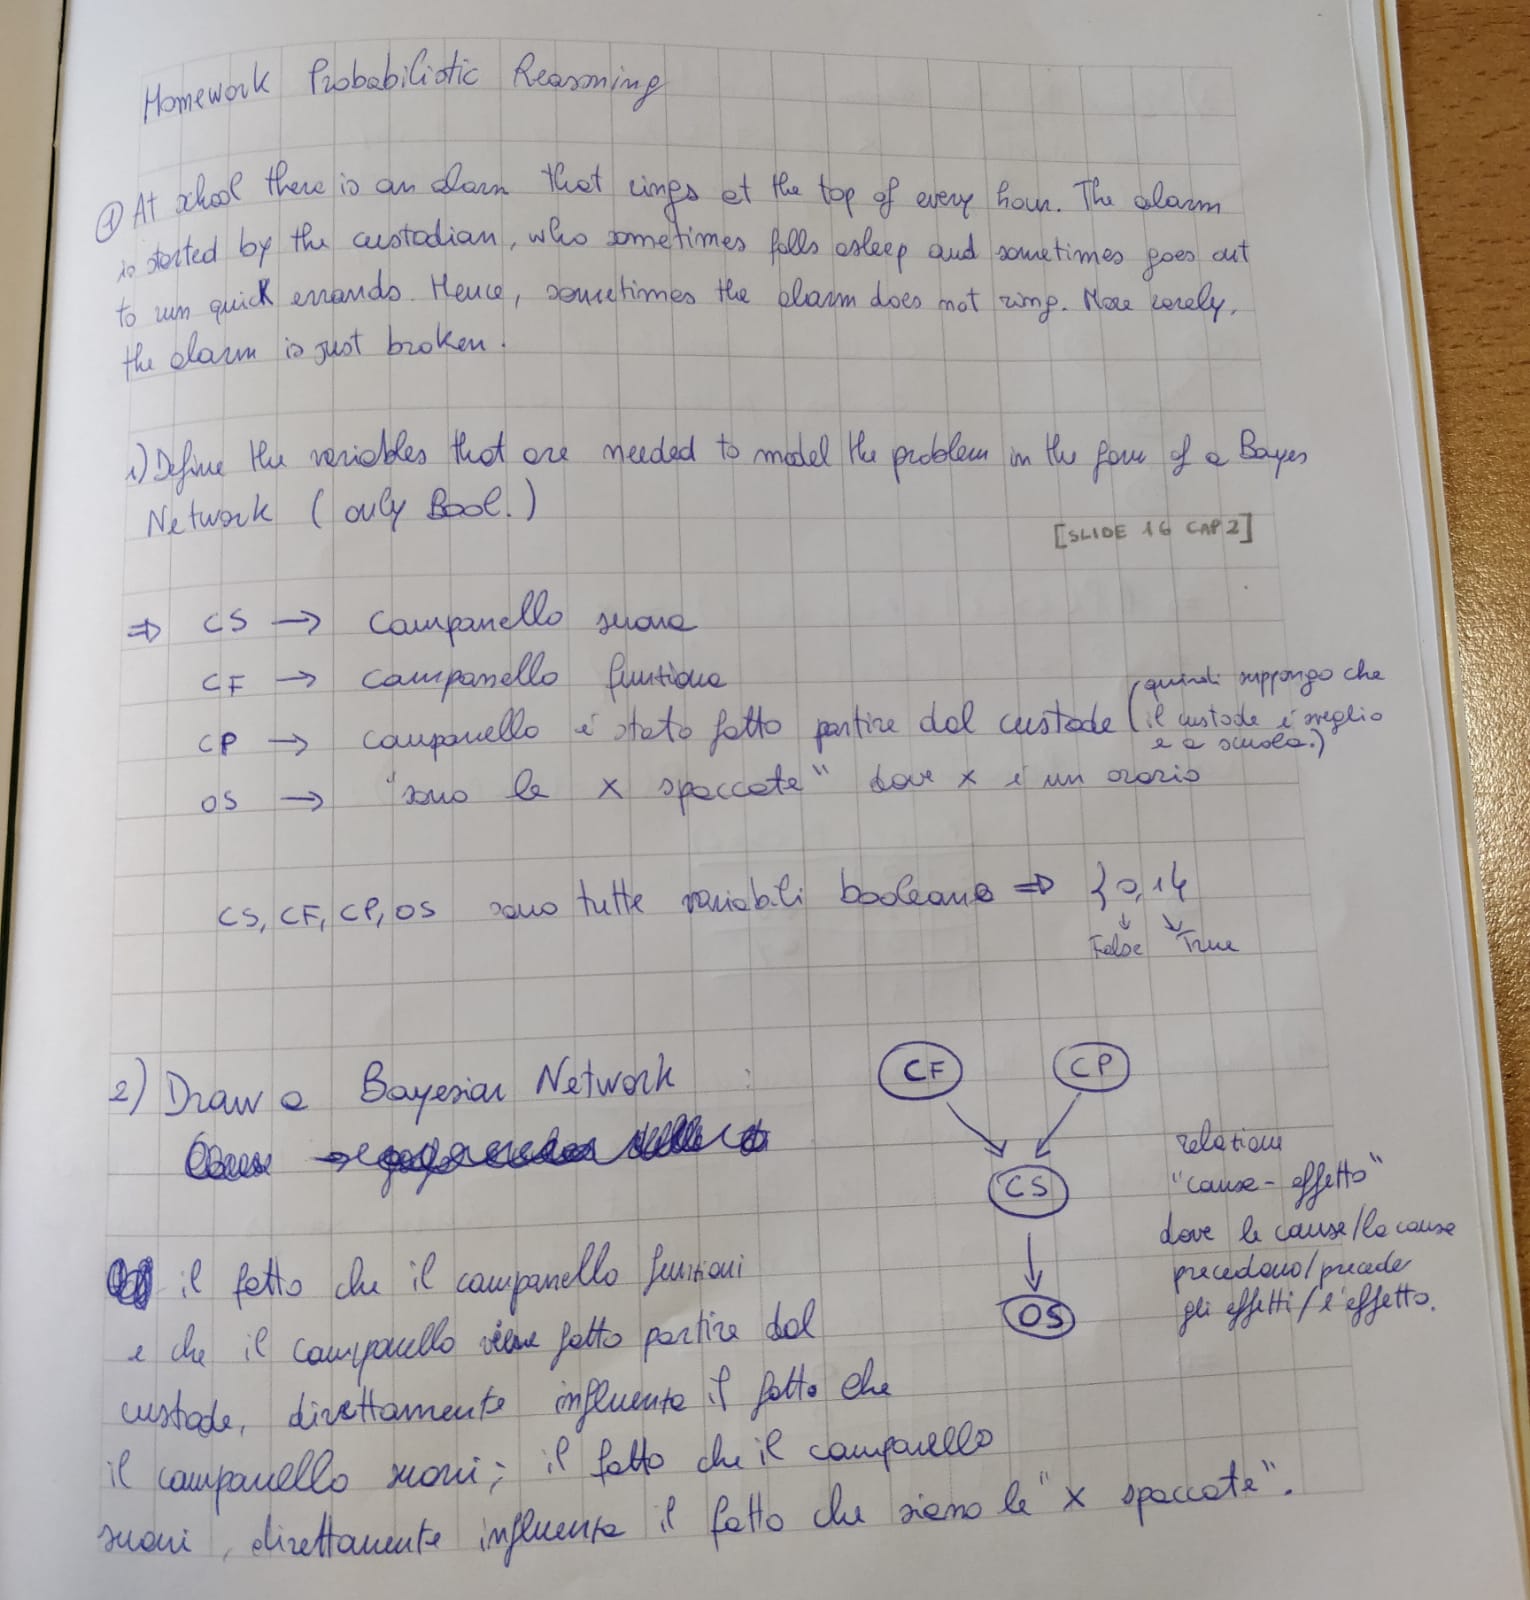 Homework Probabilistic Reasoning
1) At school there is an alarm that rings at the top of every hour. The alarm
is started by the custodian, who sometimes falls asleep and sometimes goes out
to run quick errands. Hence, sometimes the alarm does not ring. More rarely,
the alarm is just broken.
1) Define the variables that are needed to model the problem in the form of a Bayes
Network (only Bool.)
[SLIDE 16 CAP 2]
⇒ CS → campanello suona
CF → campanello funziona
CP → campanello è stato fatto partire dal custode (quindi suppongo che
il custode è sveglio
e a scuola.)
OS → "sono le x spaccate" dove x è un orario
CS, CF, CP, OS sono tutte variabili booleane ⇒ {0,1}
↓ ↘
False True
2) Draw a Bayesian Network :
CF CP
CS
OS
relazione
"cause-effetto"
dove le cause/la causa
precedono/precede
gli effetti/l'effetto.
il fatto che il campanello funzioni
e che il campanello viene fatto partire dal
custode, direttamente influenza il fatto che
il campanello suoni; il fatto che il campanello
suoni, direttamente influenza il fatto che siano le "x spaccate".